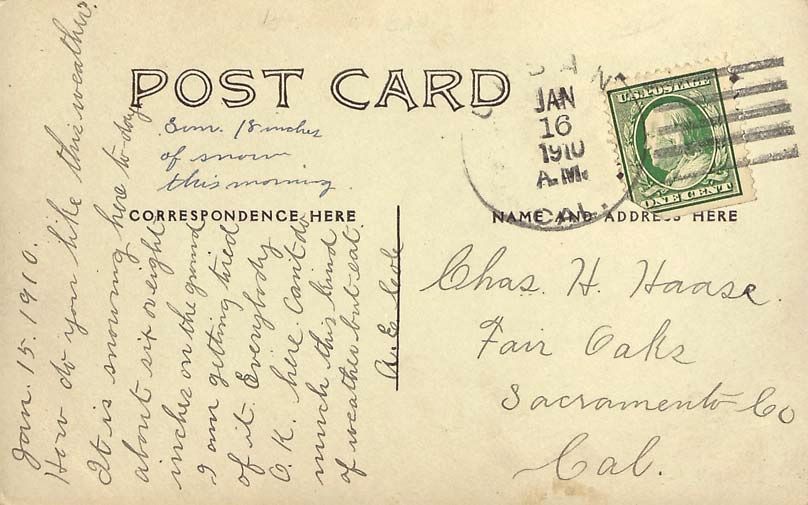 POST CARD
Sun. 18 inches
of snow
this morning.
CORRESPONDENCE HERE
NAME AND ADDRESS HERE
JAN
16
1910
A.M.
CAL.
U.S. POSTAGE
ONE CENT
Jan. 15. 1910.
How do you like this weather.
It is snowing here to-day
about six or eight
inches on the ground
I am getting tired
of it. Everybody
O.K. here. Can't do
much this kind
of weather but eat.
Chas. H. Haase.
Fair Oaks
Sacramento Co
Cal.